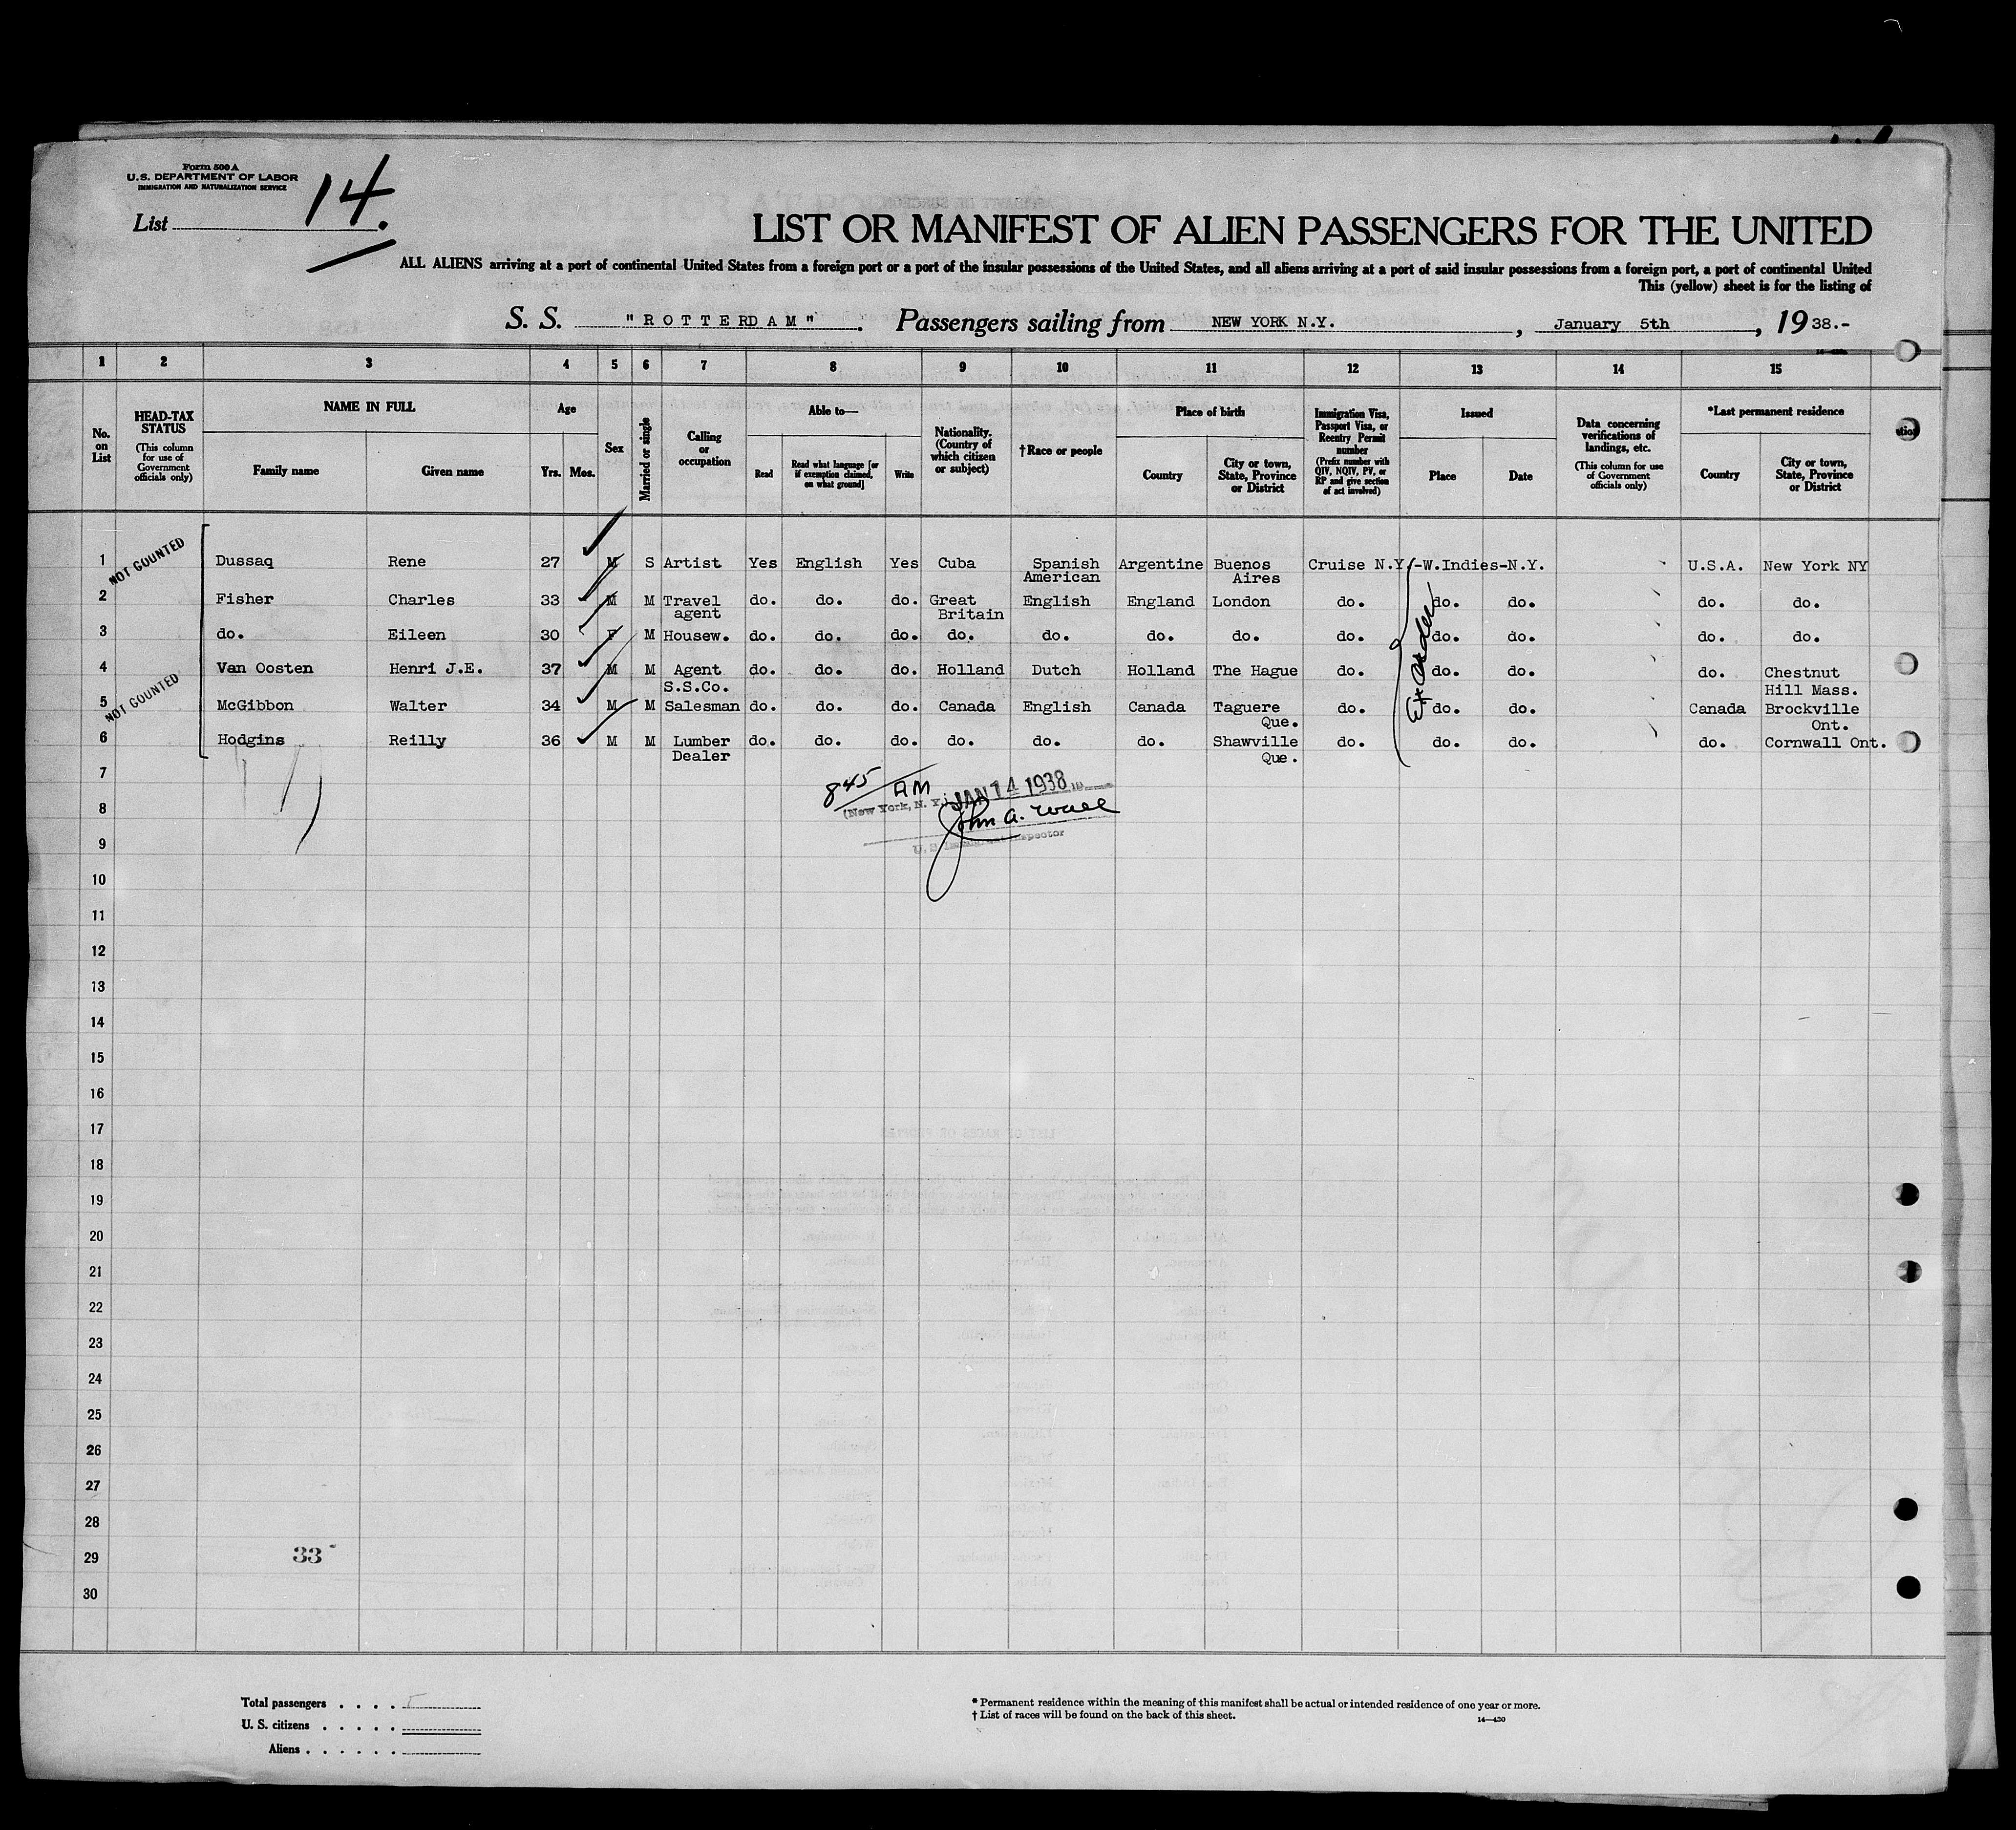 Form 500 A
U.S. DEPARTMENT OF LABOR
IMMIGRATION AND NATURALIZATION SERVICE
List 14.
LIST OR MANIFEST OF ALIEN PASSENGERS FOR THE UNITED
ALL ALIENS arriving at a port of continental United States from a foreign port or a port of the insular possessions of the United States, and all aliens arriving at a port of said insular possessions from a foreign port, a port of continental United
This (yellow) sheet is for the listing of
S. S. "ROTTERDAM". Passengers sailing from NEW YORK N.Y., January 5th, 19 38.-
1 2 3 4 5 6 7 8 9 10 11 12 13 14 15
No. on List
HEAD-TAX STATUS (This column for use of Government officials only)
NAME IN FULL
Family name Given name
Age
Yrs. Mos.
Sex
Married or single
Calling or occupation
Able to—
Read Read what language [or if exemption claimed, on what ground] Write
Nationality. (Country of which citizen or subject)
†Race or people
Place of birth
Country City or town, State, Province or District
Immigration Visa, Passport Visa, or Reentry Permit number (Prefix number with QIV, NQIV, PV, or RP and give section of act involved)
Issued
Place Date
Data concerning verifications of landings, etc. (This column for use of Government officials only)
*Last permanent residence
Country City or town, State, Province or District
NOT COUNTED
1 Dussaq Rene 27 M S Artist Yes English Yes Cuba Spanish American Argentine Buenos Aires Cruise N.Y.-W.Indies-N.Y. U.S.A. New York NY
2 Fisher Charles 33 M M Travel agent do. do. do. Great Britain English England London do. do. do. do. do.
3 do. Eileen 30 F M Housew. do. do. do. do. do. do. do. do. do. do. do. do.
4 Van Oosten Henri J.E. 37 M M Agent S.S.Co. do. do. do. Holland Dutch Holland The Hague do. do. do. do. Chestnut Hill Mass.
NOT COUNTED
5 McGibbon Walter 34 M M Salesman do. do. do. Canada English Canada Taguere Que. do. do. do. Canada Brockville Ont.
6 Hodgins Reilly 36 M M Lumber Dealer do. do. do. do. do. do. Shawville Que. do. do. do. do. Cornwall Ont.
7
845 AM
(New York, N. Y.) JAN 14 1938 19
8
John A.
U. S. Immigrant Inspector
9
10
11
12
13
14
15
16
17
18
19
20
21
22
23
24
25
26
27
28
29
33
30
Total passengers . . . . 5
U. S. citizens . . . . .
Aliens . . . . . .
* Permanent residence within the meaning of this manifest shall be actual or intended residence of one year or more.
† List of races will be found on the back of this sheet.
14—430